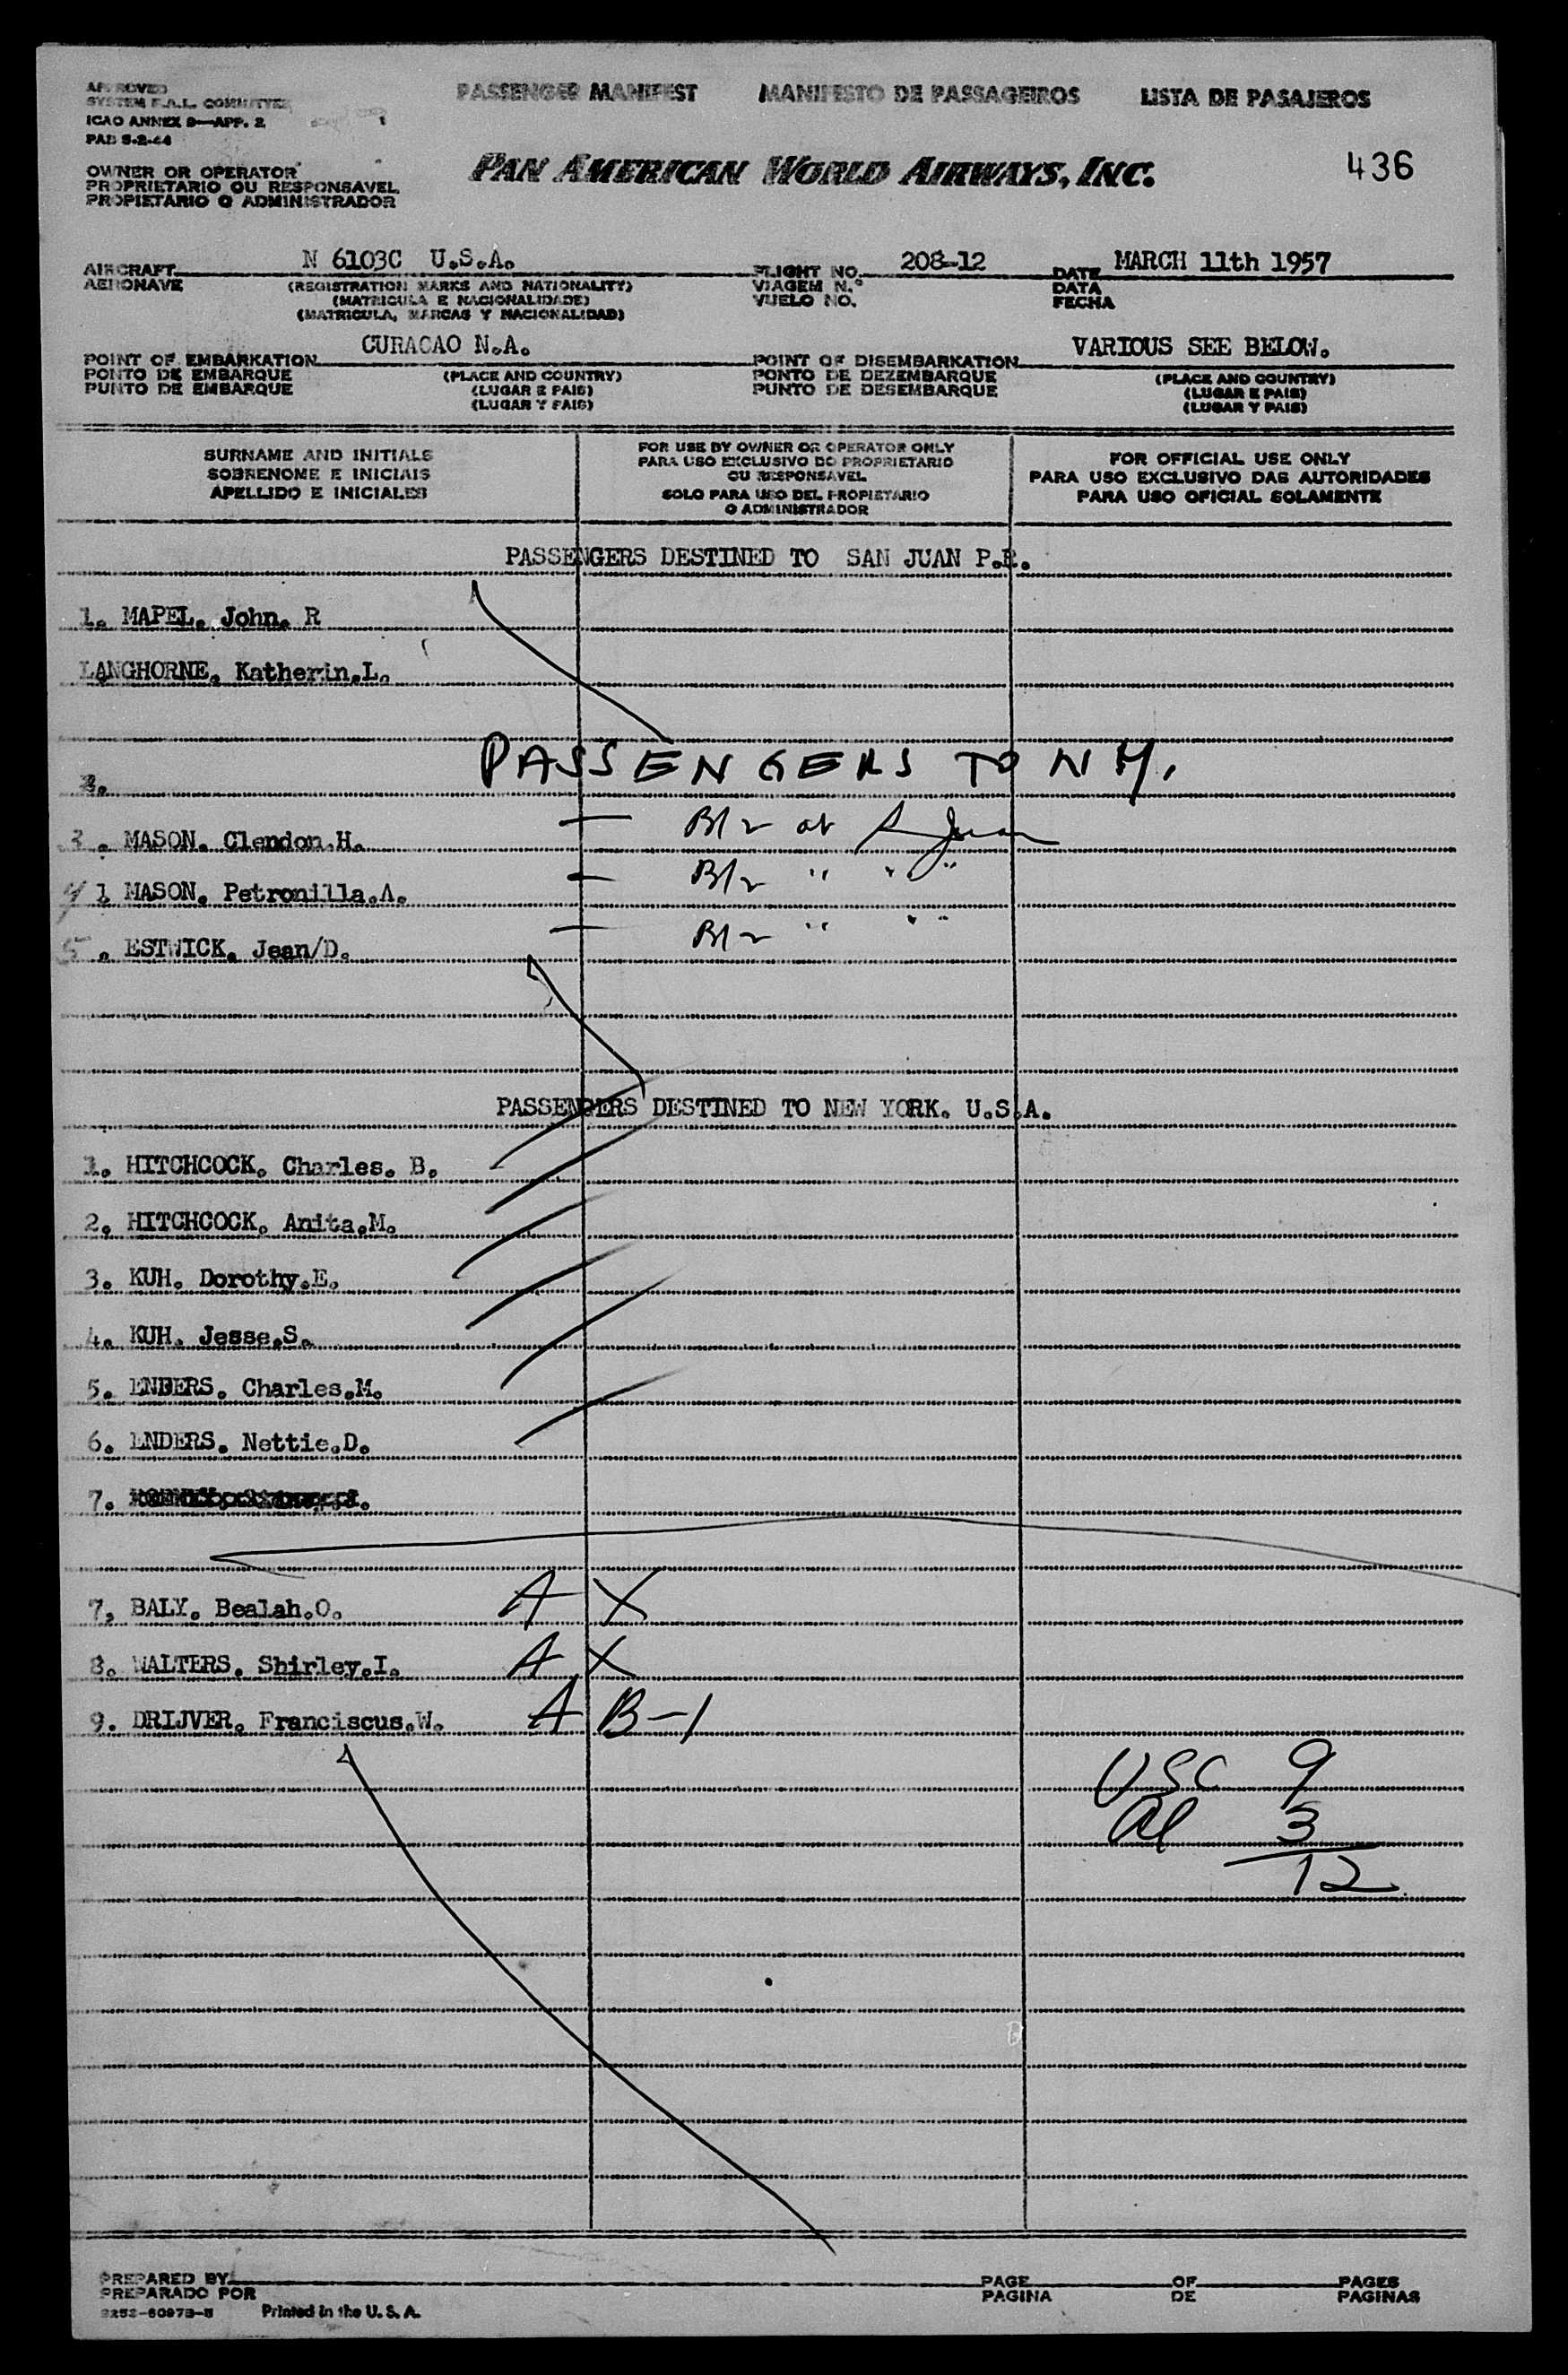 APPROVED
SYSTEM F.A.L. COMMITTEE
ICAO ANNEX 9—APP. 2
PAD 5-2-44
PASSENGER MANIFEST MANIFESTO DE PASSAGEIROS LISTA DE PASAJEROS
OWNER OR OPERATOR
PROPRIETARIO OU RESPONSAVEL
PROPIETARIO O ADMINISTRADOR
PAN AMERICAN WORLD AIRWAYS, INC.
436
AIRCRAFT N 6103C U.S.A. FLIGHT NO. 208-12 DATE MARCH 11th 1957
AERONAVE (REGISTRATION MARKS AND NATIONALITY) VIAGEM N.º DATA
(MATRICULA E NACIONALIDADE) VUELO NO. FECHA
(MATRICULA, MARCAS Y NACIONALIDAD)
POINT OF EMBARKATION CURACAO N.A. POINT OF DISEMBARKATION VARIOUS SEE BELOW.
PONTO DE EMBARQUE (PLACE AND COUNTRY) PONTO DE DEZEMBARQUE (PLACE AND COUNTRY)
PUNTO DE EMBARQUE (LUGAR E PAIS) PUNTO DE DESEMBARQUE (LUGAR E PAIS)
(LUGAR Y PAIS) (LUGAR Y PAIS)
SURNAME AND INITIALS
SOBRENOME E INICIAIS
APELLIDO E INICIALES
FOR USE BY OWNER OR OPERATOR ONLY
PARA USO EXCLUSIVO DO PROPRIETARIO
OU RESPONSAVEL
SOLO PARA USO DEL PROPIETARIO
O ADMINISTRADOR
FOR OFFICIAL USE ONLY
PARA USO EXCLUSIVO DAS AUTORIDADES
PARA USO OFICIAL SOLAMENTE
PASSENGERS DESTINED TO SAN JUAN P.R.
1. MAPEL. John. R
LANGHORNE. Katherin.L.
PASSENGERS TO N Y.
3 . MASON. Clendon.H. — B/2 at S Juan
4 1 MASON. Petronilla.A. — B/2 " " "
5 . ESTWICK. Jean/D. — B/2 " " "
PASSENGERS DESTINED TO NEW YORK. U.S.A.
1. HITCHCOCK. Charles. B.
2. HITCHCOCK. Anita.M.
3. KUH. Dorothy.E.
4. KUH. Jesse.S.
5. ENDERS. Charles.M.
6. ENDERS. Nettie.D.
7.
7, BALY. Bealah.O. A X
8. WALTERS. Shirley.I. A X
9. DRIJVER. Franciscus.W. A B-1
USC 9
Al 3
12
PREPARED BY PAGE OF PAGES
PREPARADO POR PAGINA DE PAGINAS
Printed in the U.S.A.